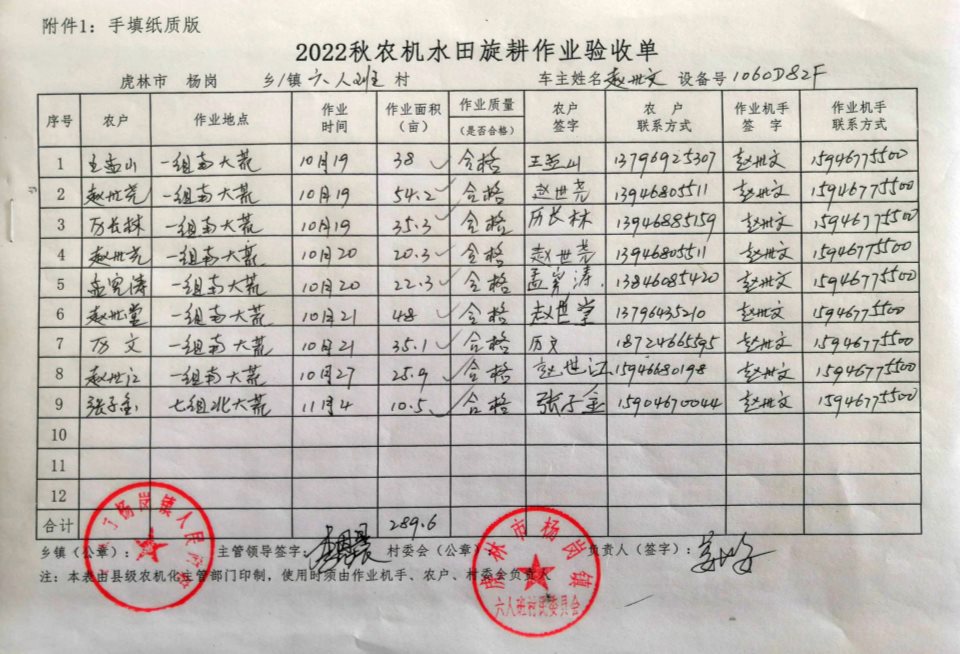 附件1：手填纸质版
2022秋农机水田旋耕作业验收单
虎林市 杨岗 乡/镇 六人班 村 车主姓名 赵世文 设备号 1060D82F
序号 农户 作业地点 作业时间 作业面积（亩） 作业质量（是否合格） 农户签字 农户联系方式 作业机手签字 作业机手联系方式
1 王孟山 一组南大荒 10月19 38 合格 王孟山 13796925307 赵世文 15946775500
2 赵世尧 一组南大荒 10月19 54.2 合格 赵世尧 13946805511 赵世文 15946775500
3 历长林 一组南大荒 10月19 35.3 合格 历长林 13946885159 赵世文 15946775500
4 赵世尧 一组南大荒 10月20 20.3 合格 赵世尧 13946805511 赵世文 15946775500
5 一组南大荒 10月20 22.3 合格 13846085420 赵世文 15946775500
6 赵世堂 一组南大荒 10月21 48 合格 赵世堂 13796435210 赵世文 15946775500
7 历文 一组南大荒 10月21 35.1 合格 历文 18724665595 赵世文 15946775500
8 赵世江 一组南大荒 10月27 25.9 合格 赵世江 15946680198 赵世文 15946775500
9 张子金 七组北大荒 11月4 10.5 合格 张子金 15904670044 赵世文 15946775500
10
11
12
合计 289.6
乡镇（公章）： 主管领导签字： 村委会（公章） 负责人（签字）：
注：本表由县级农机化主管部门印制，使用时须由作业机手、农户、村委会负责人
杨岗镇人民
虎林市杨岗镇
六人班村民委员会